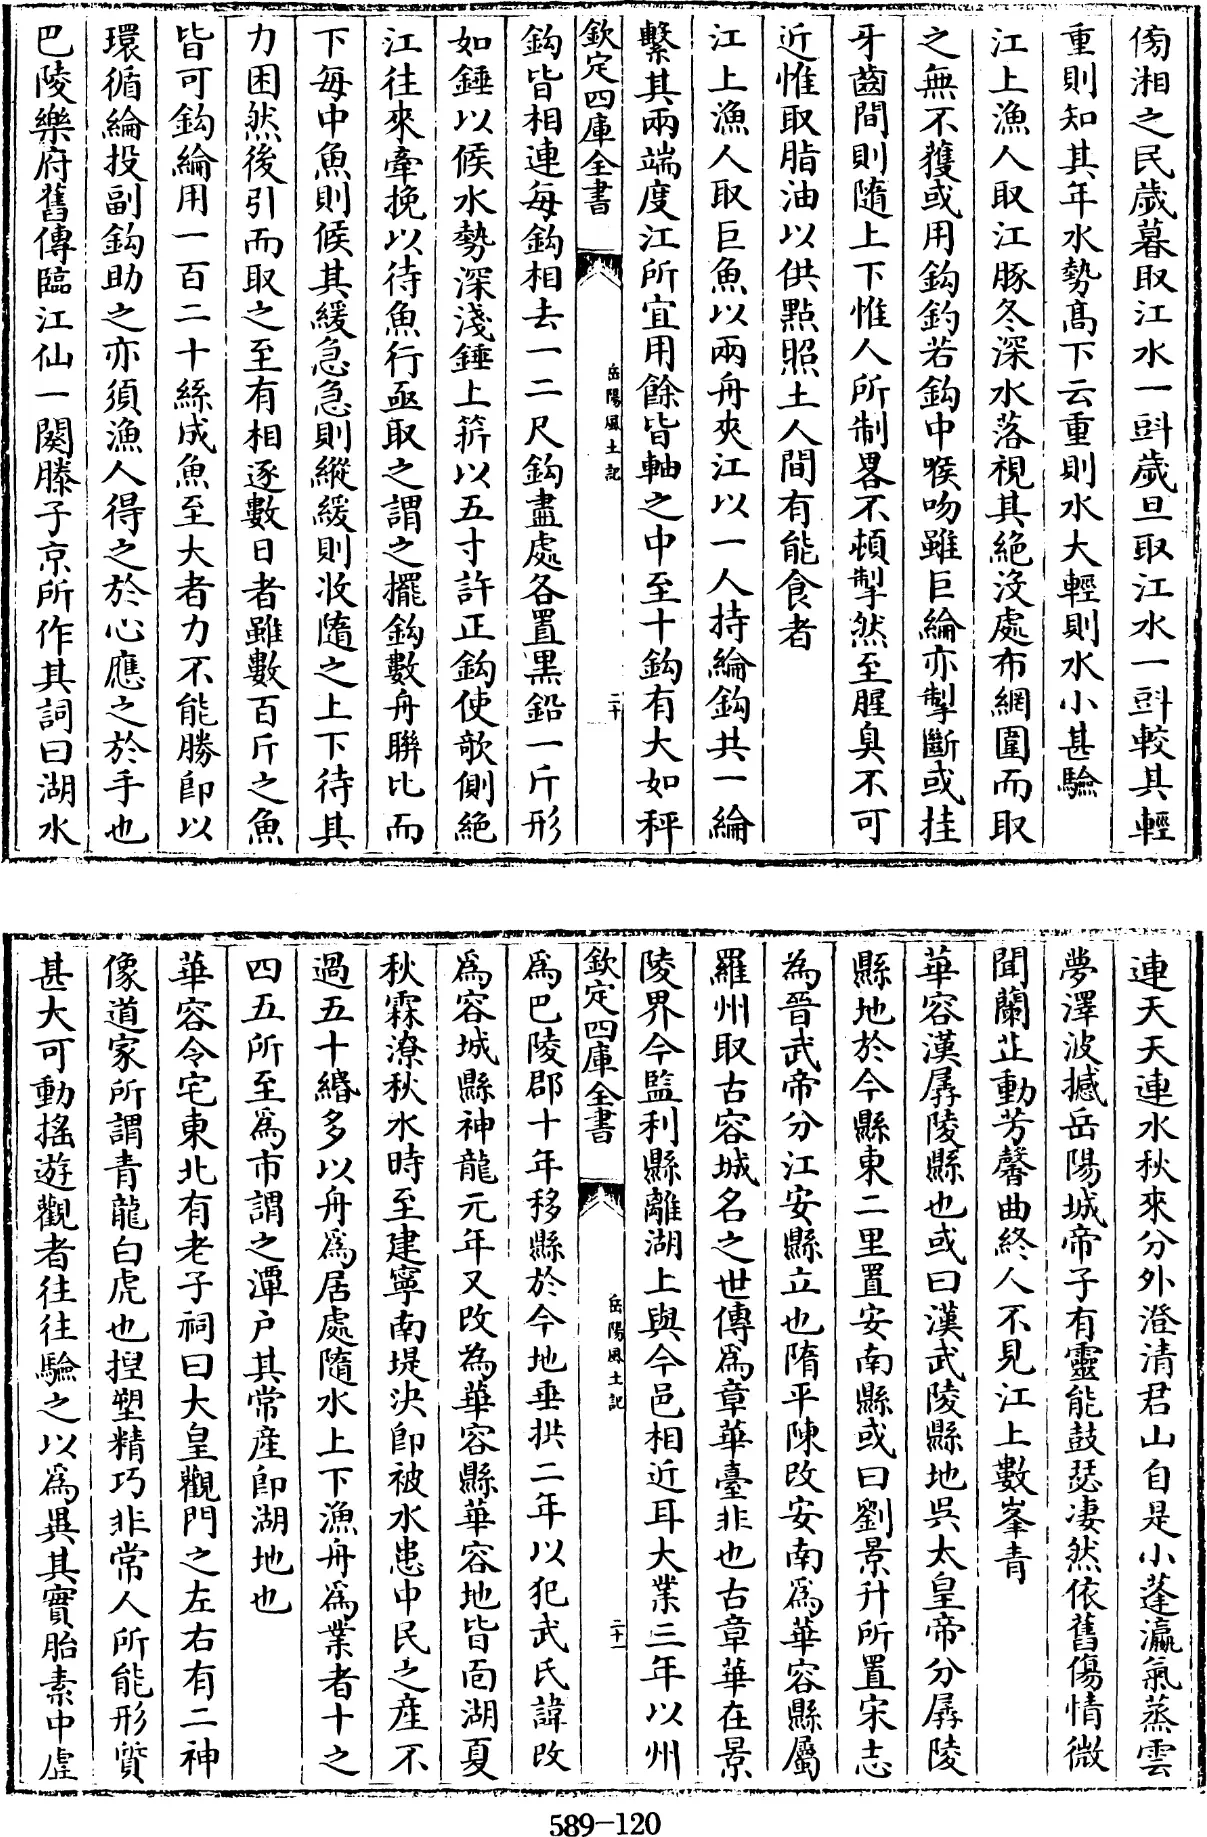 傍湘之民歲暮取江水一㪷歲旦取江水一㪷較其輕
重則知其年水勢髙下云重則水大輕則水小甚驗
江上漁人取江豚冬深水落視其絶没處布網圍而取
之無不獲或用鈎釣若鈎中喉吻雖巨綸亦掣斷或挂
牙齒間則隨上下惟人所制畧不頓掣然至腥臭不可
近惟取脂油以供㸃照土人間有能食者
江上漁人取巨魚以兩舟夾江以一人持綸鈎共一綸
繫其兩端度江所宜用餘皆軸之中至十鈎有大如秤
欽定四庫全書
岳陽風土記
二十
鈎皆相連每鈎相去一二尺鈎盡處各置黑鉛一斤形
如錘以候水勢深淺錘上䇭以五寸許正鈎使欹側絶
江往來牽挽以待魚行亟取之謂之擺鈎數舟聯比而
下每中魚則候其緩急急則縱緩則收隨之上下待其
力困然後引而取之至有相逐數日者雖數百斤之魚
皆可鈎綸用一百二十絲成魚至大者力不能勝卽以
環循綸投副鈎助之亦須漁人得之於心應之於手也
巴陵樂府舊傳臨江仙一闋滕子京所作其詞曰湖水
連天天連水秋來分外澄清君山自是小蓬瀛氣蒸雲
夢澤波撼岳陽城帝子有靈能鼓瑟凄然依舊傷情微
聞蘭芷動芳馨曲終人不見江上數峯青
華容漢孱陵縣也或曰漢武陵縣地吳太皇帝分孱陵
縣地於今縣東二里置安南縣或曰劉景升所置宋志
為晉武帝分江安縣立也隋平陳改安南爲華容縣屬
羅州取古容城名之世傳爲章華臺非也古章華在景
陵界今監利縣離湖上與今邑相近耳大業三年以州
欽定四庫全書
岳陽風土記
二十一
爲巴陵郡十年移縣於今地垂拱二年以犯武氏諱改
爲容城縣神龍元年又改為華容縣華容地皆面湖夏
秋霖潦秋水時至建寧南堤決卽被水患中民之産不
過五十緡多以舟爲居處隨水上下漁舟爲業者十之
四五所至爲市謂之潭戸其常産卽湖地也
華容令宅東北有老子祠曰大皇觀門之左右有二神
像道家所謂青龍白虎也揑塑精巧非常人所能形質
甚大可動搖遊觀者往往驗之以爲異其實胎素中虚
589-120